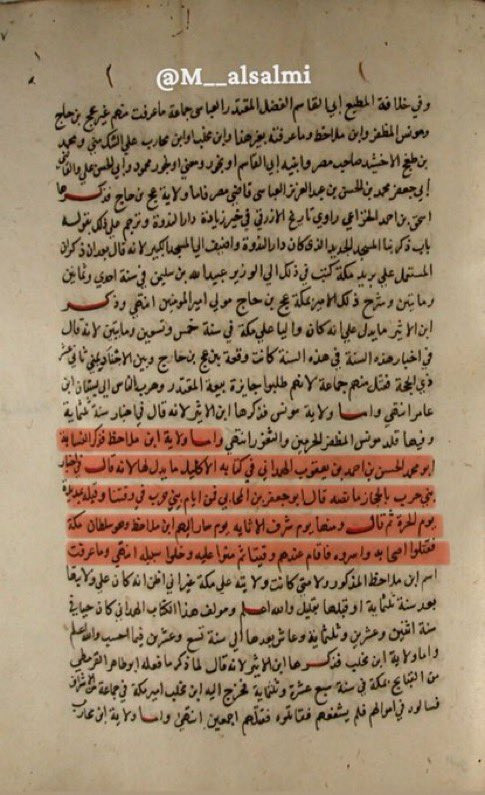 @M__alsalmi
وفي خلافة المطيع ابي القاسم الفضل المقتدر العباسي جماعة ما عرفت منهم غير عج بن حاج
ومونس المظفر وابن ملاحظ وما عرفته بغير هذا وابن مخلب وابن محارب علي الشك مني ومحمد
بن طغج الاخشيد صاحب مصر وابنيه ابي القاسم
ابي جعفر محمد بن الحسن بن عبد العزيز العباسي قاضي مصر فاما ولاية عج بن حاج فذكرها
اسحق بن احمد الخزاعي راوي تاريخ الازرقي في خبر زيادة دار الندوة وترجم علي ذلك بقوله
باب ذكر بنا المسجد الجديد الذي كان دار الندوة واضيف الي المسجد الكبير لانه قال بعد ان ذكر ان
المستعمل علي بريد مكة كتب في ذلك الي الوزير عبيد الله بن سليمن في سنة احدي وثمانين
ومايتين وشرح ذلك لامير مكة عج بن حاج مولي امير المومنين انتهي وذكر
ابن الاثير ما يدل علي انه كان واليا علي مكة في سنة خمس وتسعين ومايتين لانه قال
في اخبار هذه السنة في هذه السنة كانت وقعة بين عج بن حاج وبين الاجناد بمني ثاني عشر
ذي الحجة فقتل منهم جماعة لانهم طلبوا جايزة بيعة المقتدر وهرب الناس الي بستان ابن
عامر انتهي واما ولاية مونس فذكرها ابن الاثير لانه قال في اخبار سنة ثلثماية
وفيها قلد مونس المظفر الحرمين والثغور انتهي واما ولاية ابن ملاحظ فذكر النسابة
ابو محمد الحسن بن احمد بن يعقوب الهمداني في كتابه الاكليل ما يدل لها لانه قال في اخبار
بني حرب بالحجاز ما نصه قال ابو جعفر بن المحابي فمن ايام بني حرب في وقتنا وقبله بمديدة
يوم الحرة ثم قال ومنها يوم شرف الاثاية يوم سار اليهم ابن ملاحظ وهو سلطان مكة
فقتلوا اصحابه واسروه فاقام عندهم وقيتا ثم منوا عليه وخلوا سبيله انتهي وما عرفت
اسم ابن ملاحظ المذكور ولا متي كانت ولايته علي مكة غير اني اظن انه كان علي ولايتها
بعد سنة ثلثماية او قبلها بقليل والله اعلم ومولف هذا الكتاب الهمداني كان حيا في
سنة اثنين وعشرين وثلثماية وعاش بعدها الي سنة تسع وعشرين فيما احسب والله اعلم
واما ولاية ابن مخلب فذكرها ابن الاثير لانه قال لما ذكر ما فعله ابو طاهر القرمطي
من القبايح بمكة في سنة سبع عشرة وثلثماية فخرج اليه ابن مخلب امير مكة في جماعة من الاشراف
فسالوه في اموالهم فلم يشفعهم فقاتلوه فقتلهم اجمعين انتهي واما ولاية ابن محارب